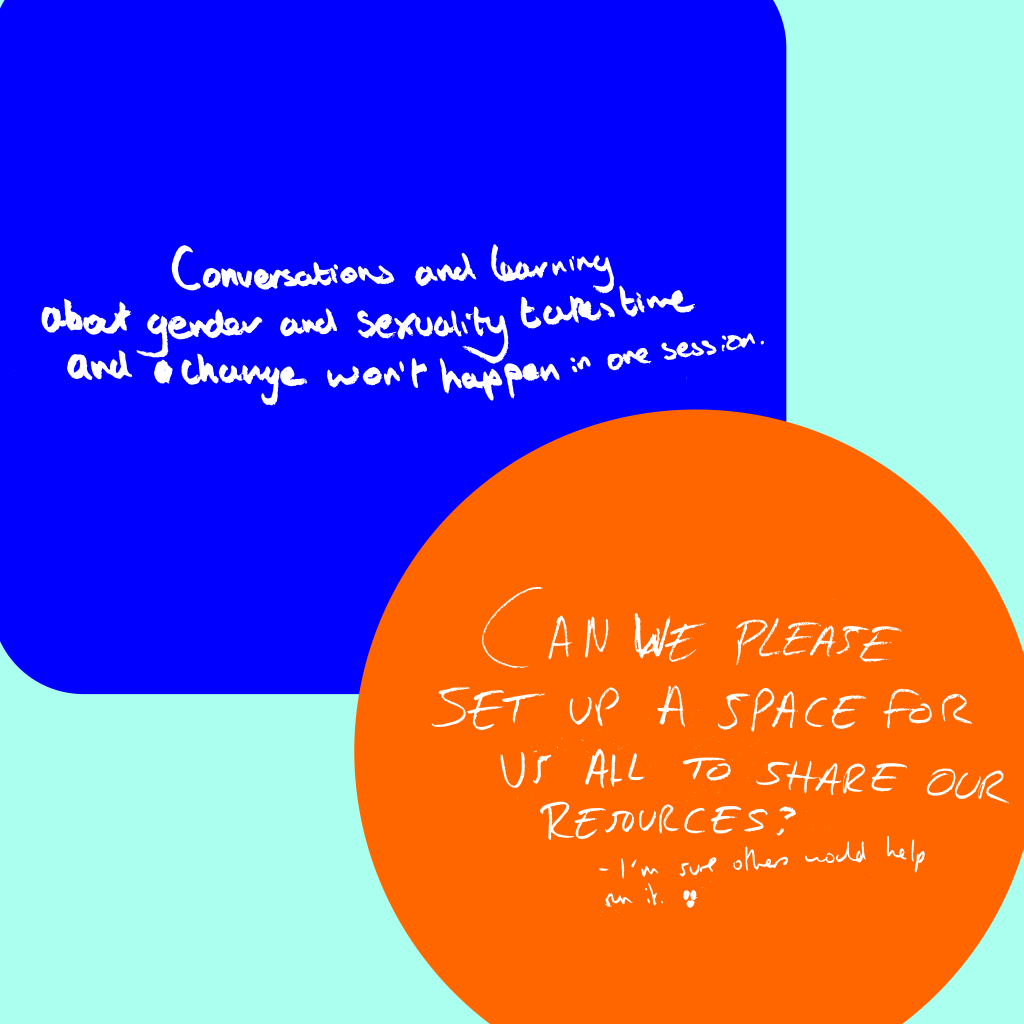 Conversations and learning
about gender and sexuality takes time
and change won't happen in one session.
CAN WE PLEASE
SET UP A SPACE FOR
US ALL TO SHARE OUR
RESOURCES?
- I'm sure others would help
run it.